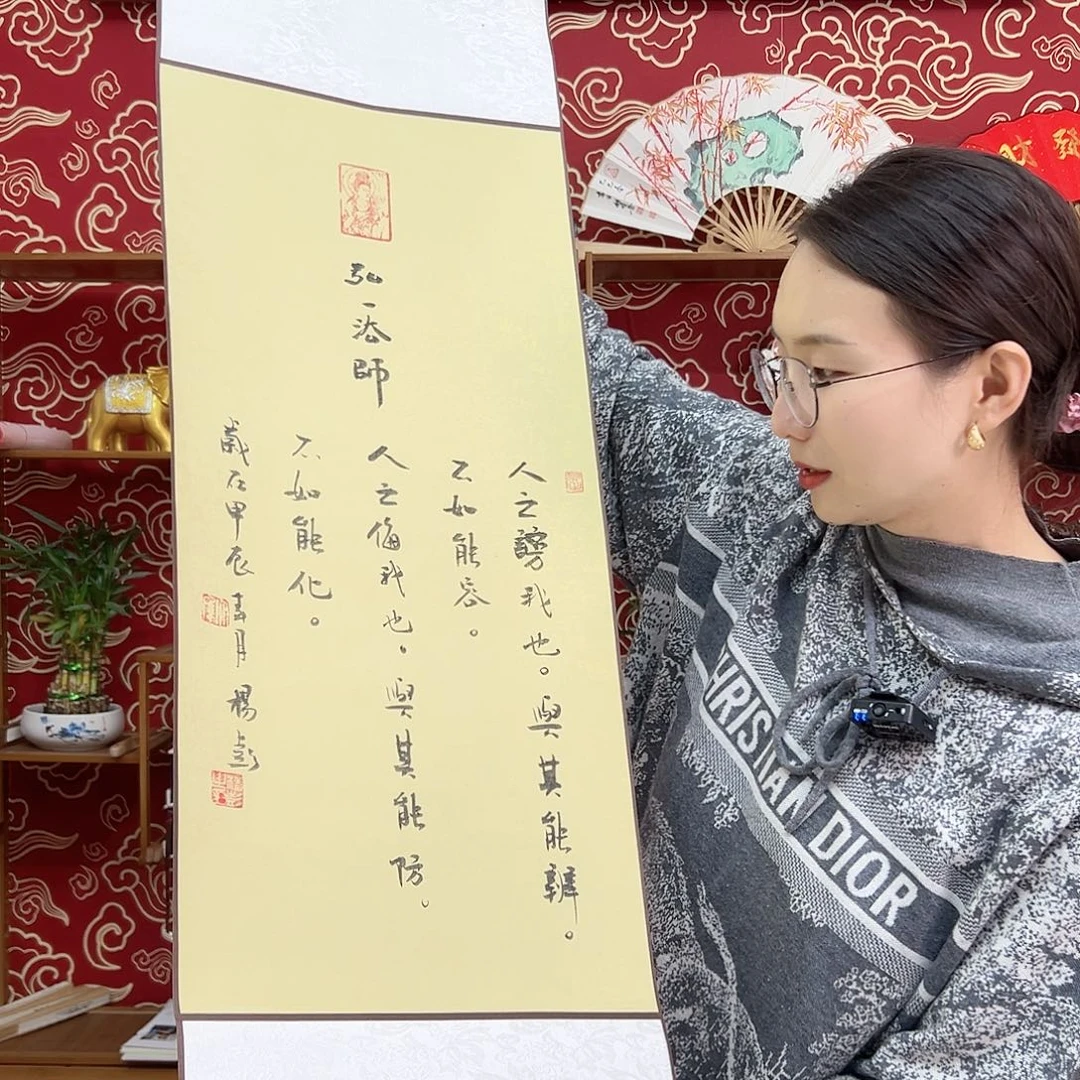 人之謗我也。與其能辯。
不如能容。
人之侮我也。與其能防。
不如能化。
弘一法師
歲在甲辰春月楊彭
CHRISTIAN DIOR
财